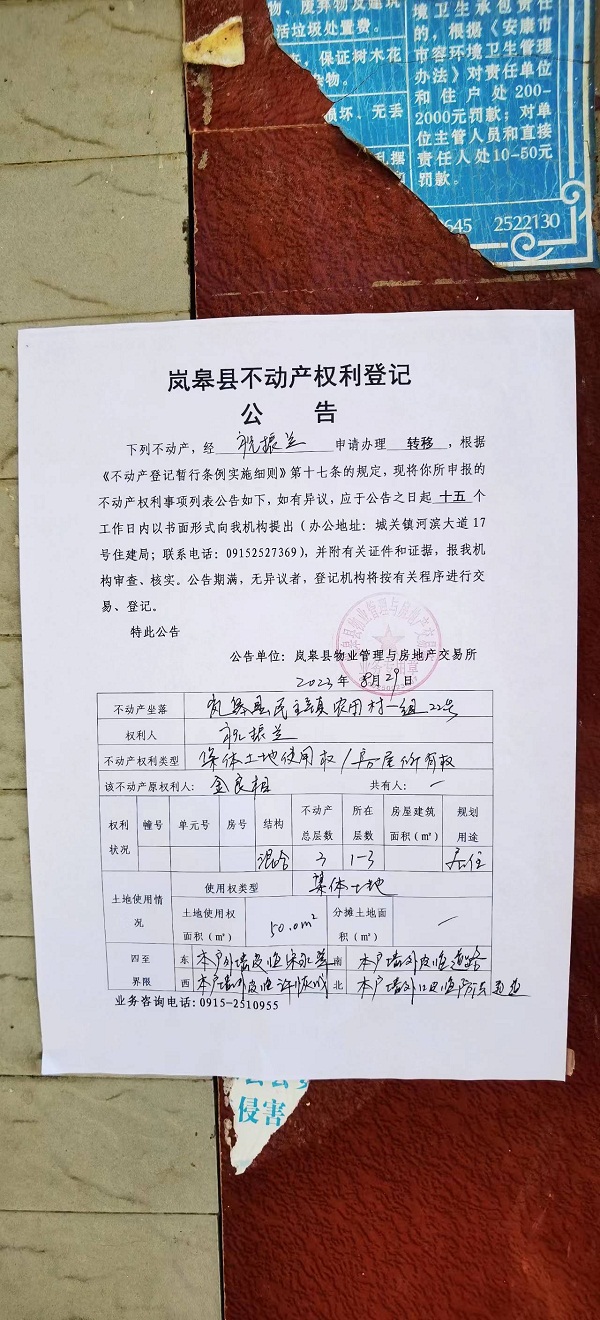 物、废弃物及建筑
活垃圾处置费。
保证树木花
物。
损坏、无丢
乱摆
境卫生承包责任
的，根据《安康市
市容环境卫生管理
办法》对责任单位
和住户处200-
2000元罚款；对单
位主管人员和直接
责任人处10-50元
罚款。
645 2522130
岚皋县不动产权利登记
公 告
下列不动产，经 祝振兰 申请办理 转移 ，根据
《不动产登记暂行条例实施细则》第十七条的规定，现将你所申报的
不动产权利事项列表公告如下，如有异议，应于公告之日起 十五 个
工作日内以书面形式向我机构提出（办公地址：城关镇河滨大道17
号住建局；联系电话：09152527369），并附有关证件和证据，报我机
构审查、核实。公告期满，无异议者，登记机构将按有关程序进行交
易、登记。
特此公告
公告单位：岚皋县物业管理与房地产交易所
2023年8月29日
不动产坐落 岚皋县民主镇农田村一组22号
权利人 祝振兰
不动产权利类型 集体土地使用权/房屋所有权
该不动产原权利人：金良相 共有人：—
权利状况 幢号 单元号 房号 结构 不动产总层数 所在层数 房屋建筑面积（㎡） 规划用途
混合 3 1-3 居住
土地使用情况 使用权类型 集体土地
土地使用权面积（㎡） 50.0m² 分摊土地面积（㎡） —
四至界限 东 本户外墙皮临 南 本户墙外皮临道路
西 本户墙外皮临许 北 本户墙外
业务咨询电话：0915-2510955
侵害